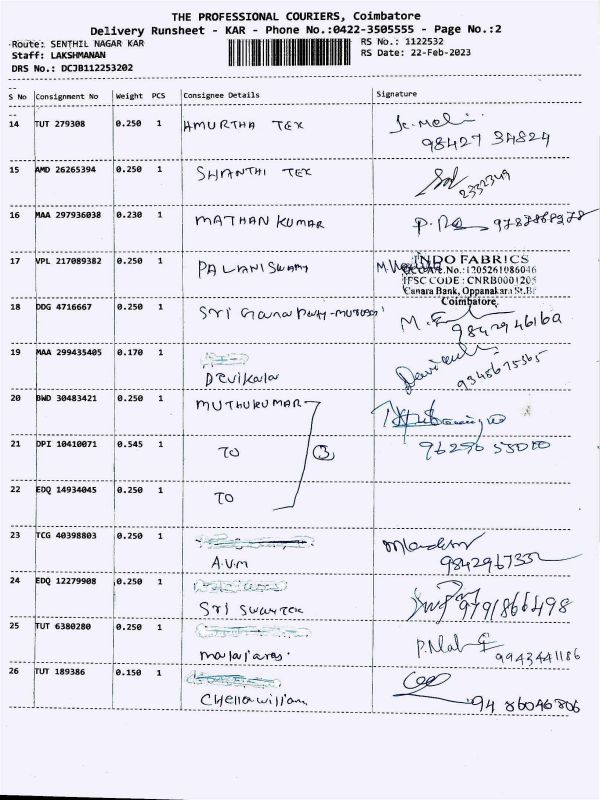 THE PROFESSIONAL COURIERS, Coimbatore
Delivery Runsheet - KAR - Phone No.:0422-3505555 - Page No.:2
Route: SENTHIL NAGAR KAR RS No.: 1122532
Staff: LAKSHMANAN RS Date: 22-Feb-2023
DRS No.: DCJB112253202
S No Consignment No Weight PCS Consignee Details Signature
14 TUT 279308 0.250 1 AMURTHA TEX
98427 34824
15 AMD 26265394 0.250 1 SHANTHI TEX
2332349
16 MAA 297936038 0.230 1 MATHAN KUMAR
17 VPL 217089382 0.250 1 PALANISWAMY
INDO FABRICS
No.:1205261086046
IFSC CODE : CNRB0001205
Canara Bank, Oppanakara St.Br
Coimbatore
18 DDG 4716667 0.250 1 Sri
19 MAA 299435405 0.170 1
Devikala
20 BWD 30483421 0.250 1 MUTHUKUMAR
21 DPI 10410071 0.545 1 TO 3
22 EDQ 14934045 0.250 1 TO
23 TCG 40398803 0.250 1
A.V.M
24 EDQ 12279908 0.250 1
Sri
9791866498
25 TUT 6380280 0.250 1
9943441186
26 TUT 189386 0.150 1
Chellawilliam
94 86046806